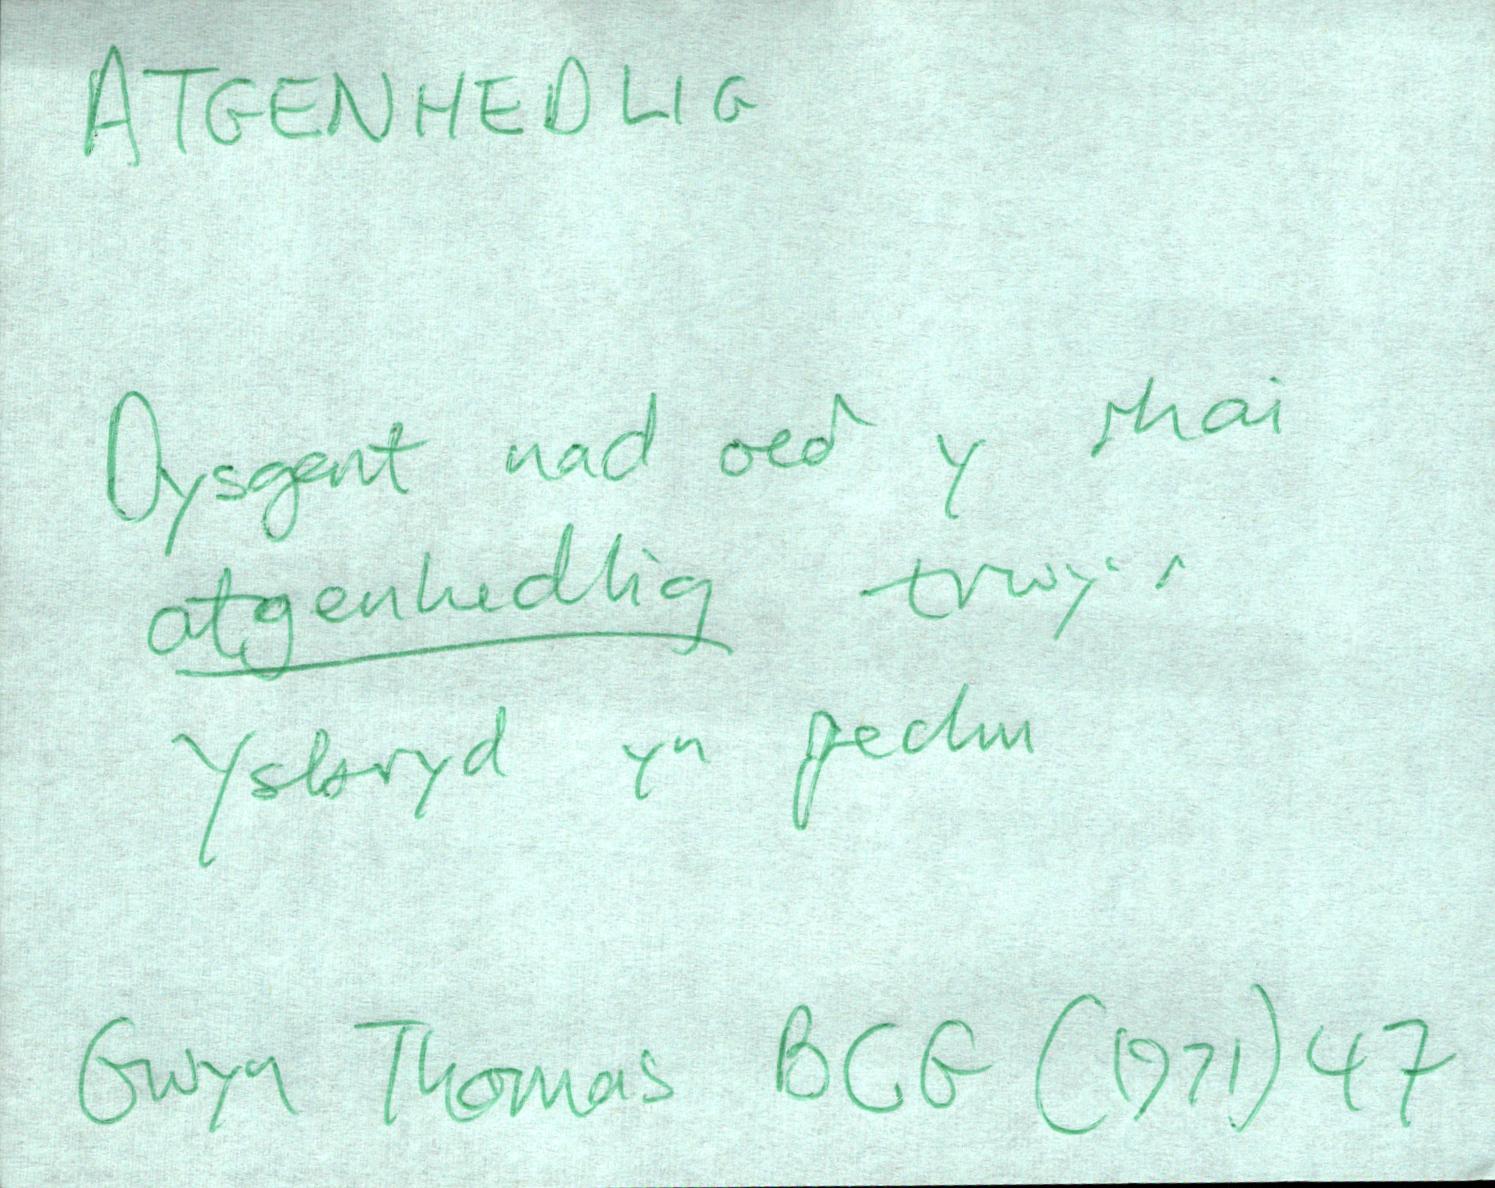 ATGENHEDLIG
Dysgent nad oed y rhai
atgenhedlig trwy'r
Ysbryd yn pechu
Gwyn Thomas BCG (1971) 47